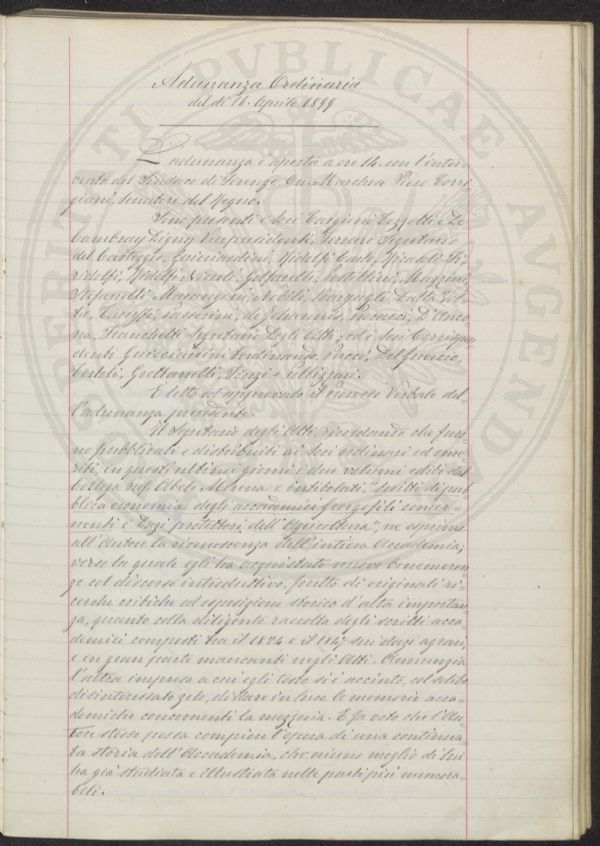 Adunanza Ordinaria
del dì 16 Aprile 1899
L'adunanza è aperta a ore 14. con l'inter-
vento del Sindaco di Firenze On. Marchese Piero Torri
giani, Senatore del Regno.
Son presenti i Soci Targioni Tozzetti e De
Cambray Digny Vicepresidenti, Ferrari Segretario
del Carteggio, Guicciardini, Ridolfi Carlo,
Ridolfi Niccolò, Golfarelli, Pestellini,
Stefanelli, Marangoni, Nobili, Bargagli, Dalla Vol-
ta, Passerini, D'Anco
na, Franchetti Segretario degli Atti ed i Soci Corrispon
denti Guicciardini Ferdinando, Pucci, Del Guercio,
Bertoli, Grottanelli,
È letto ed approvato il Processo Verbale del-
l'adunanza precedente.
Il Segretario degli Atti, ricordando che furo-
no pubblicati e distribuiti ai Soci ordinari ed eme-
riti in questi ultimi giorni i due volumi editi dal
collega Prof. Abele Morena e intitolati: "Scritti di pub-
blica economia degli accademici Georgofili concer-
nenti i Dazi protettori dell'Agricoltura", ne esprime
all'Autore la riconoscenza dell'intiera Accademia,
verso la quale egli ha acquistato nuove benemeren-
ze col discorso introduttivo, frutto di originali ri-
cerche critiche ed esposizione storica d'alta importan-
za, quanto colla diligente raccolta degli scritti acca-
demici composti tra il 1824 e il 1847 sui dazi agrari,
e in gran parte mancanti negli Atti. Annunzia
l'altra impresa a cui egli tosto si è accinto, col solito
disinteressato zelo, di dare in luce le memorie acca-
demiche concernenti la mezzeria. E fa voto che l'Au-
tore stesso possa compiere l'opera di una continua-
ta storia dell'Accademia, che niuno meglio di lui
ha già studiata e illustrata nelle parti più memora-
bili.